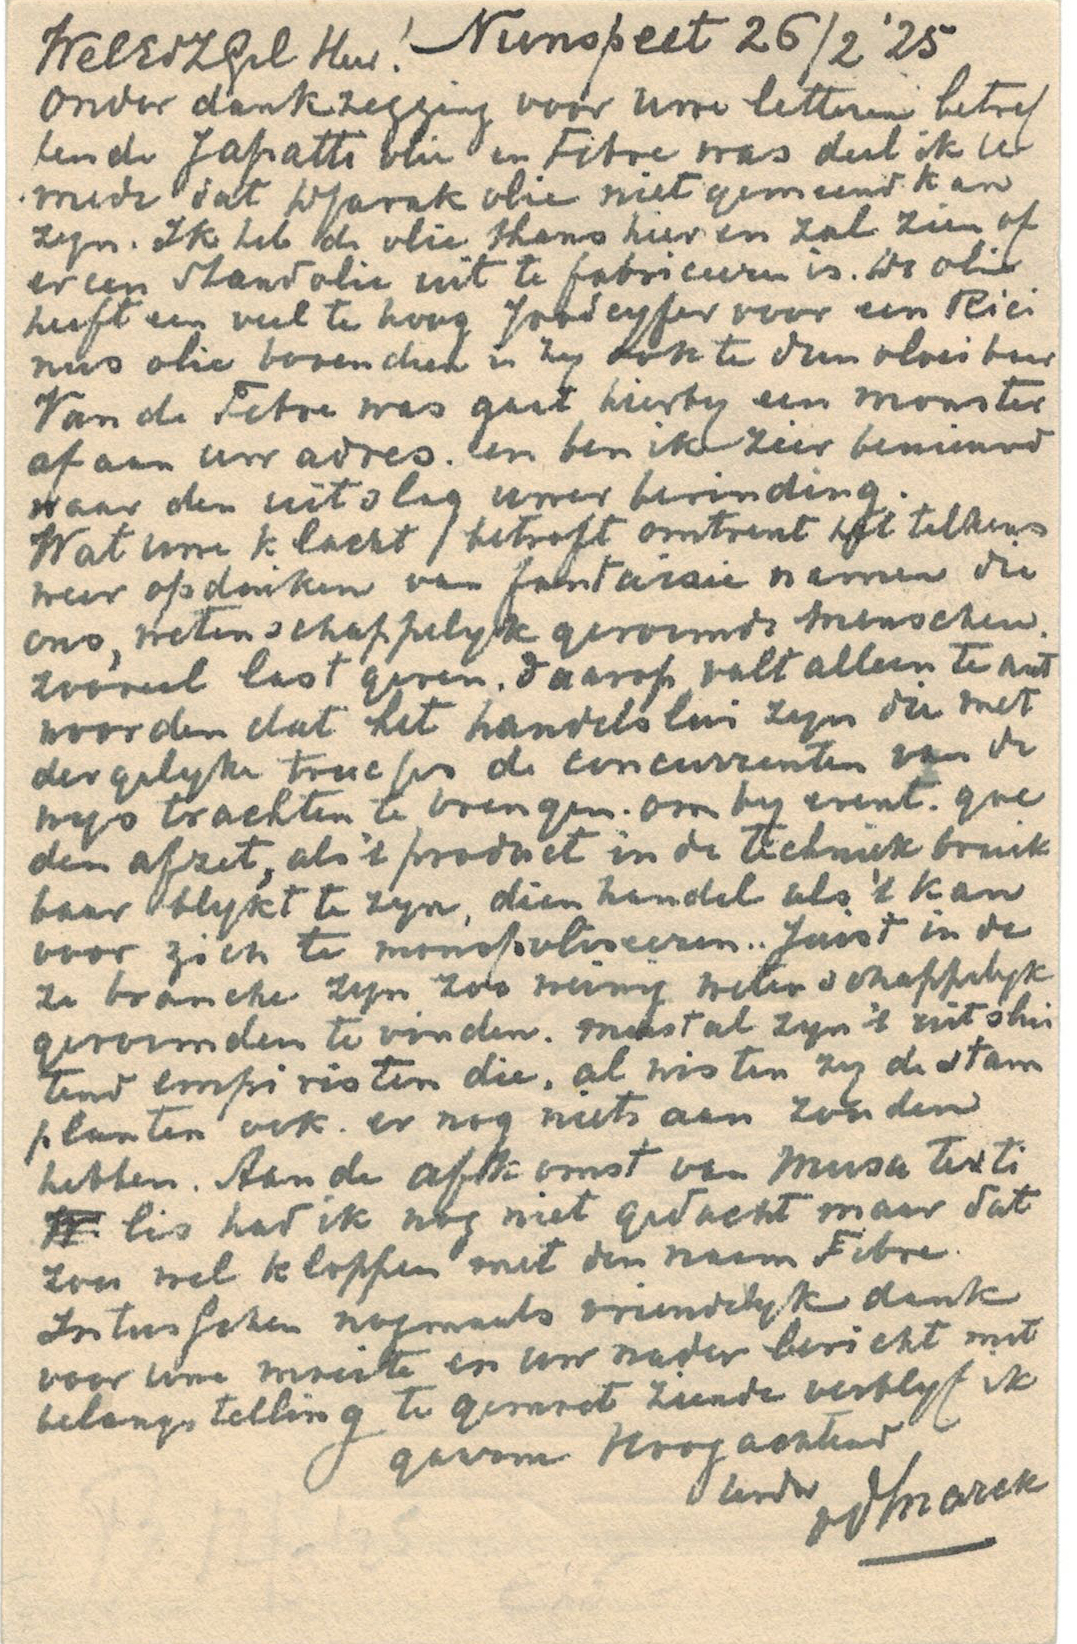 WelEdZGel Heer! Nunspeet 26/2 '25
Onder dankzegging voor uwe letteren betref
fende Japatti olie en Fibre was deel ik u
mede dat Djarak olie niet gemeend kan
zyn. Ik heb de olie thans hier en zal zien of
er een standolie uit te fabriceeren is. De olie
heeft een veel te hoog Joodcyfer voor een Rici
nus olie bovendien is zy ook te dun vloeibaar
Van de Fibre was gaat hierby een monster
af aan uw adres. en ben ik zeer benieuwd
naar den uitslag uwer bevinding.
Wat uwe klacht betreft omtrent het telkens
weer opduiken van fantaisie namen die
ons, wetenschappelyk gevormde menschen.
zooveel last geven. daarop valt alleen te ant
woorden dat het handelslui zyn die met
dergelyke trucjes de concurrenten van de
wys trachten te brengen. om by event. goe
den afzet, als 't product in de techniek bruik
baar blykt te zyn, dien handel als 't kan
voor zich te monopoliseeren.. Juist in de
ze branche zyn zoo weinig wetenschappelyk
gevormden te vinden. meestal zyn 't uitslui
tend empiristen die, al wisten zy de stam
planten ook. er nog niets aan zouden
hebben. Aan de afkomst van Musa texti
lis had ik nog niet gedacht maar dat
zou wel kloppen met den naam Fibre.
Intusschen nogmaals vriendelyk dank
voor uwe moeite en uw nader bericht met
belangstelling te gemoet ziende verblyf ik
gaarne Hoogachtend
vd Marck